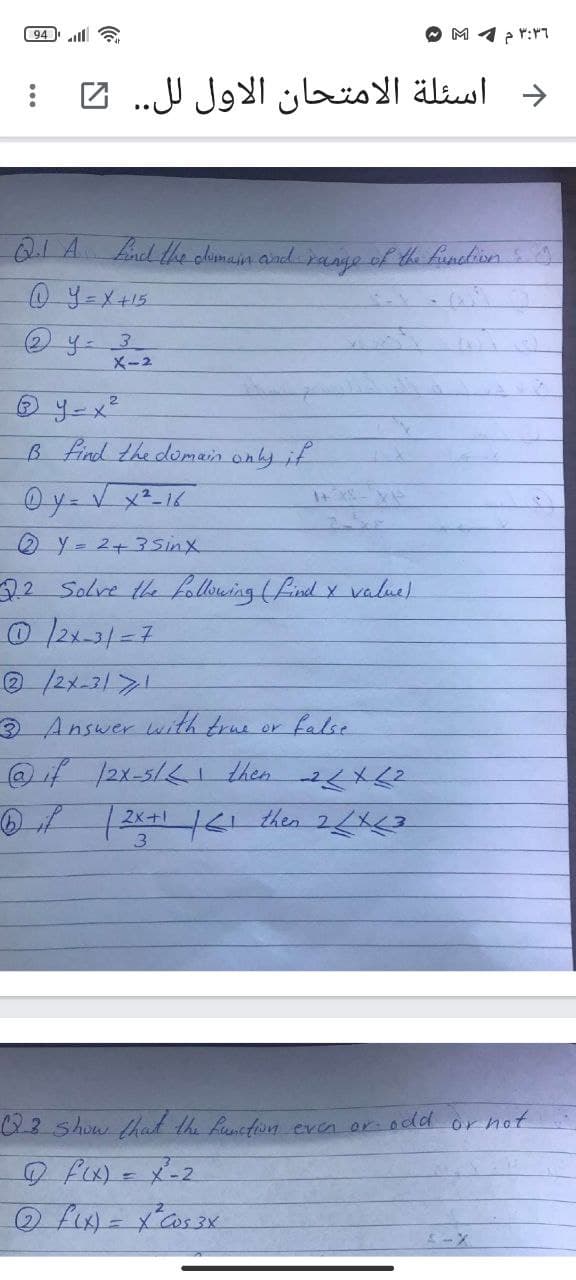 94 ٣:٣٦ م
اسئلة الامتحان الاول لل..
Q.1 A find the domain and range of the function :
① y = x + 15
② y = 3/(x-2)
③ y = x²
B find the domain only if
① y = √x²-16
② y = 2+3 sin x
Q.2 Solve the following (find x value)
① |2x-3| = 7
② |2x-3| ⩾ 1
③ Answer with true or false
ⓐ if |2x-5| ⩽ 1 then -2 ⩽ x ⩽ 2
ⓑ if |(2x+1)/3| ⩽ 1 then 2 ⩽ x ⩽ 3
Q.3 show that the function even or odd or not
① f(x) = x³-2
② f(x) = x² cos 3x